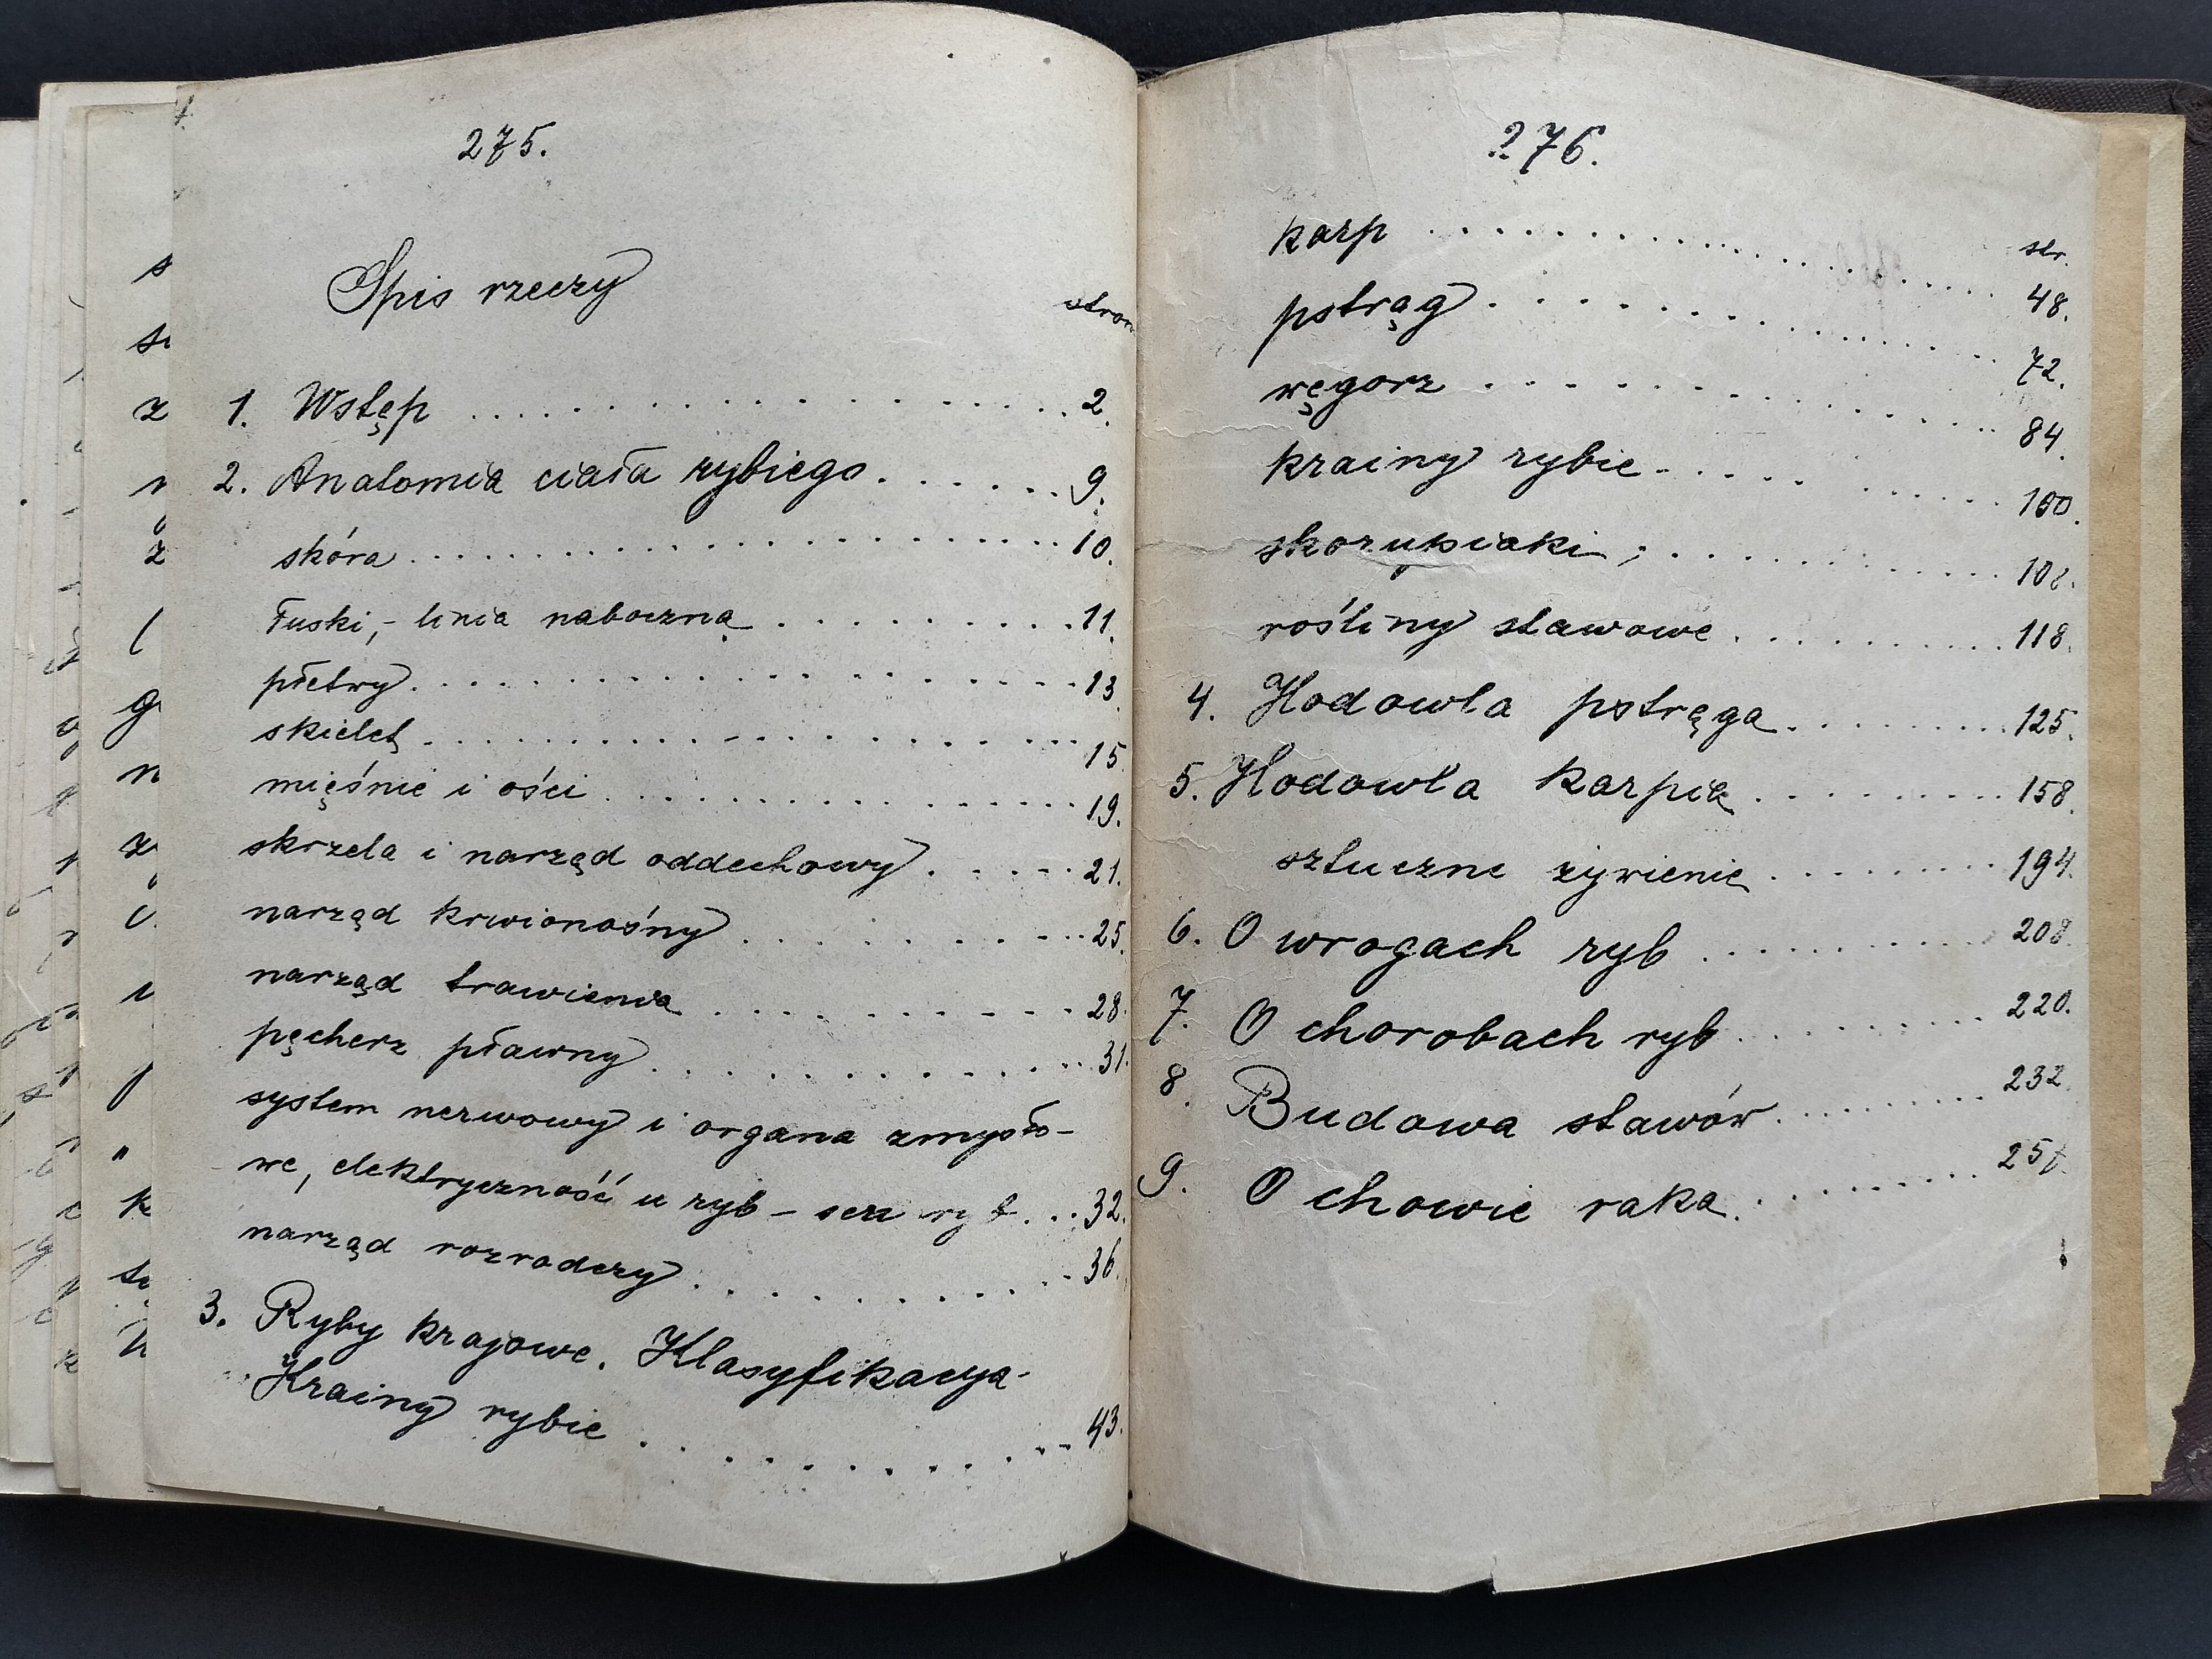 275.
Spis rzeczy
stron
1. Wstęp .................... 2.
2. Anatomia ciała rybiego ....... 9.
skóra .................... 10.
łuski, - linia naboczna .......... 11.
płetwy .................... 13.
skielet .................... 15
mięśnie i ości ................ 19.
skrzela i narząd oddechowy ...... 21.
narząd krwionośny ............ 25.
narząd trawienia ............ 28.
pęcherz pławny .............. 31.
system nerwowy i organa zmysło-
we, elektryczność u ryb - sen ryb ... 32.
narząd rozrodczy ............ 36.
3. Ryby krajowe. Klasyfikacya-
Krainy rybie .............. 43.
276.
str.
karp .................... 48.
pstrąg .................... 72.
węgorz .................... 84.
krainy rybie ................ 100.
skorupiaki ................ 108.
rośliny stawowe ............ 118.
4. Hodowla pstręga .......... 125.
5. Hodowla karpia .......... 158.
sztuczne żywienie .......... 194.
6. O wrogach ryb ............ 208.
7. O chorobach ryb .......... 220.
8. Budowa stawów .......... 232.
9. O chowie raka ..........